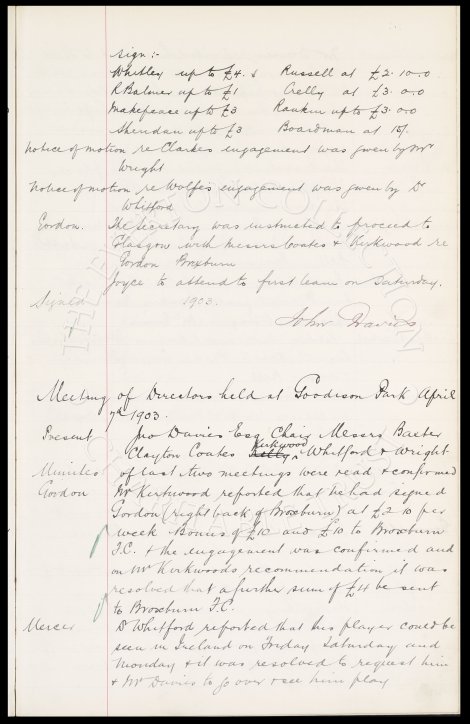 sign :-
Whitley up to £4. & Russell at £2.10.0
R Balmer up to £1 Crelly at £3.0.0
Makepeace up to £3 Rankin up to £3.0.0
Sheridan up to £3 Boardman at 15/.
Notice of motion re Clarkes engagement was given by Mr
Wright
Notice of motion re Wolfes engagement was given by Dr
Whitford
Gordon. The Secretary was instructed to proceed to
Glasgow with Messrs Coates & Kirkwood re
Gordon Broxburn
Joyce to attend to first team on Saturday.
Signed 1903.
John Davies
Meeting of Directors held at Goodison Park April
7th 1903.
Present Jno Davies Esq Chair Messrs Baxter
Clayton Coates Kelly Kirkwood Whitford & Wright
Minutes of last two meetings were read & confirmed
Gordon Mr Kirkwood reported that he had signed
Gordon (right back of Broxburn) at £2.10 per
week. Bonus of £10 and £10 to Broxburn
F.C. & the engagement was confirmed and
on Mr Kirkwoods recommendation it was
resolved that a further sum of £4 be sent
to Broxburn F.C.
Mercer Dr Whitford reported that this player could be
seen in Ireland on Friday Saturday and
Monday & it was resolved to request him
& Mr Davies to go over & see him play